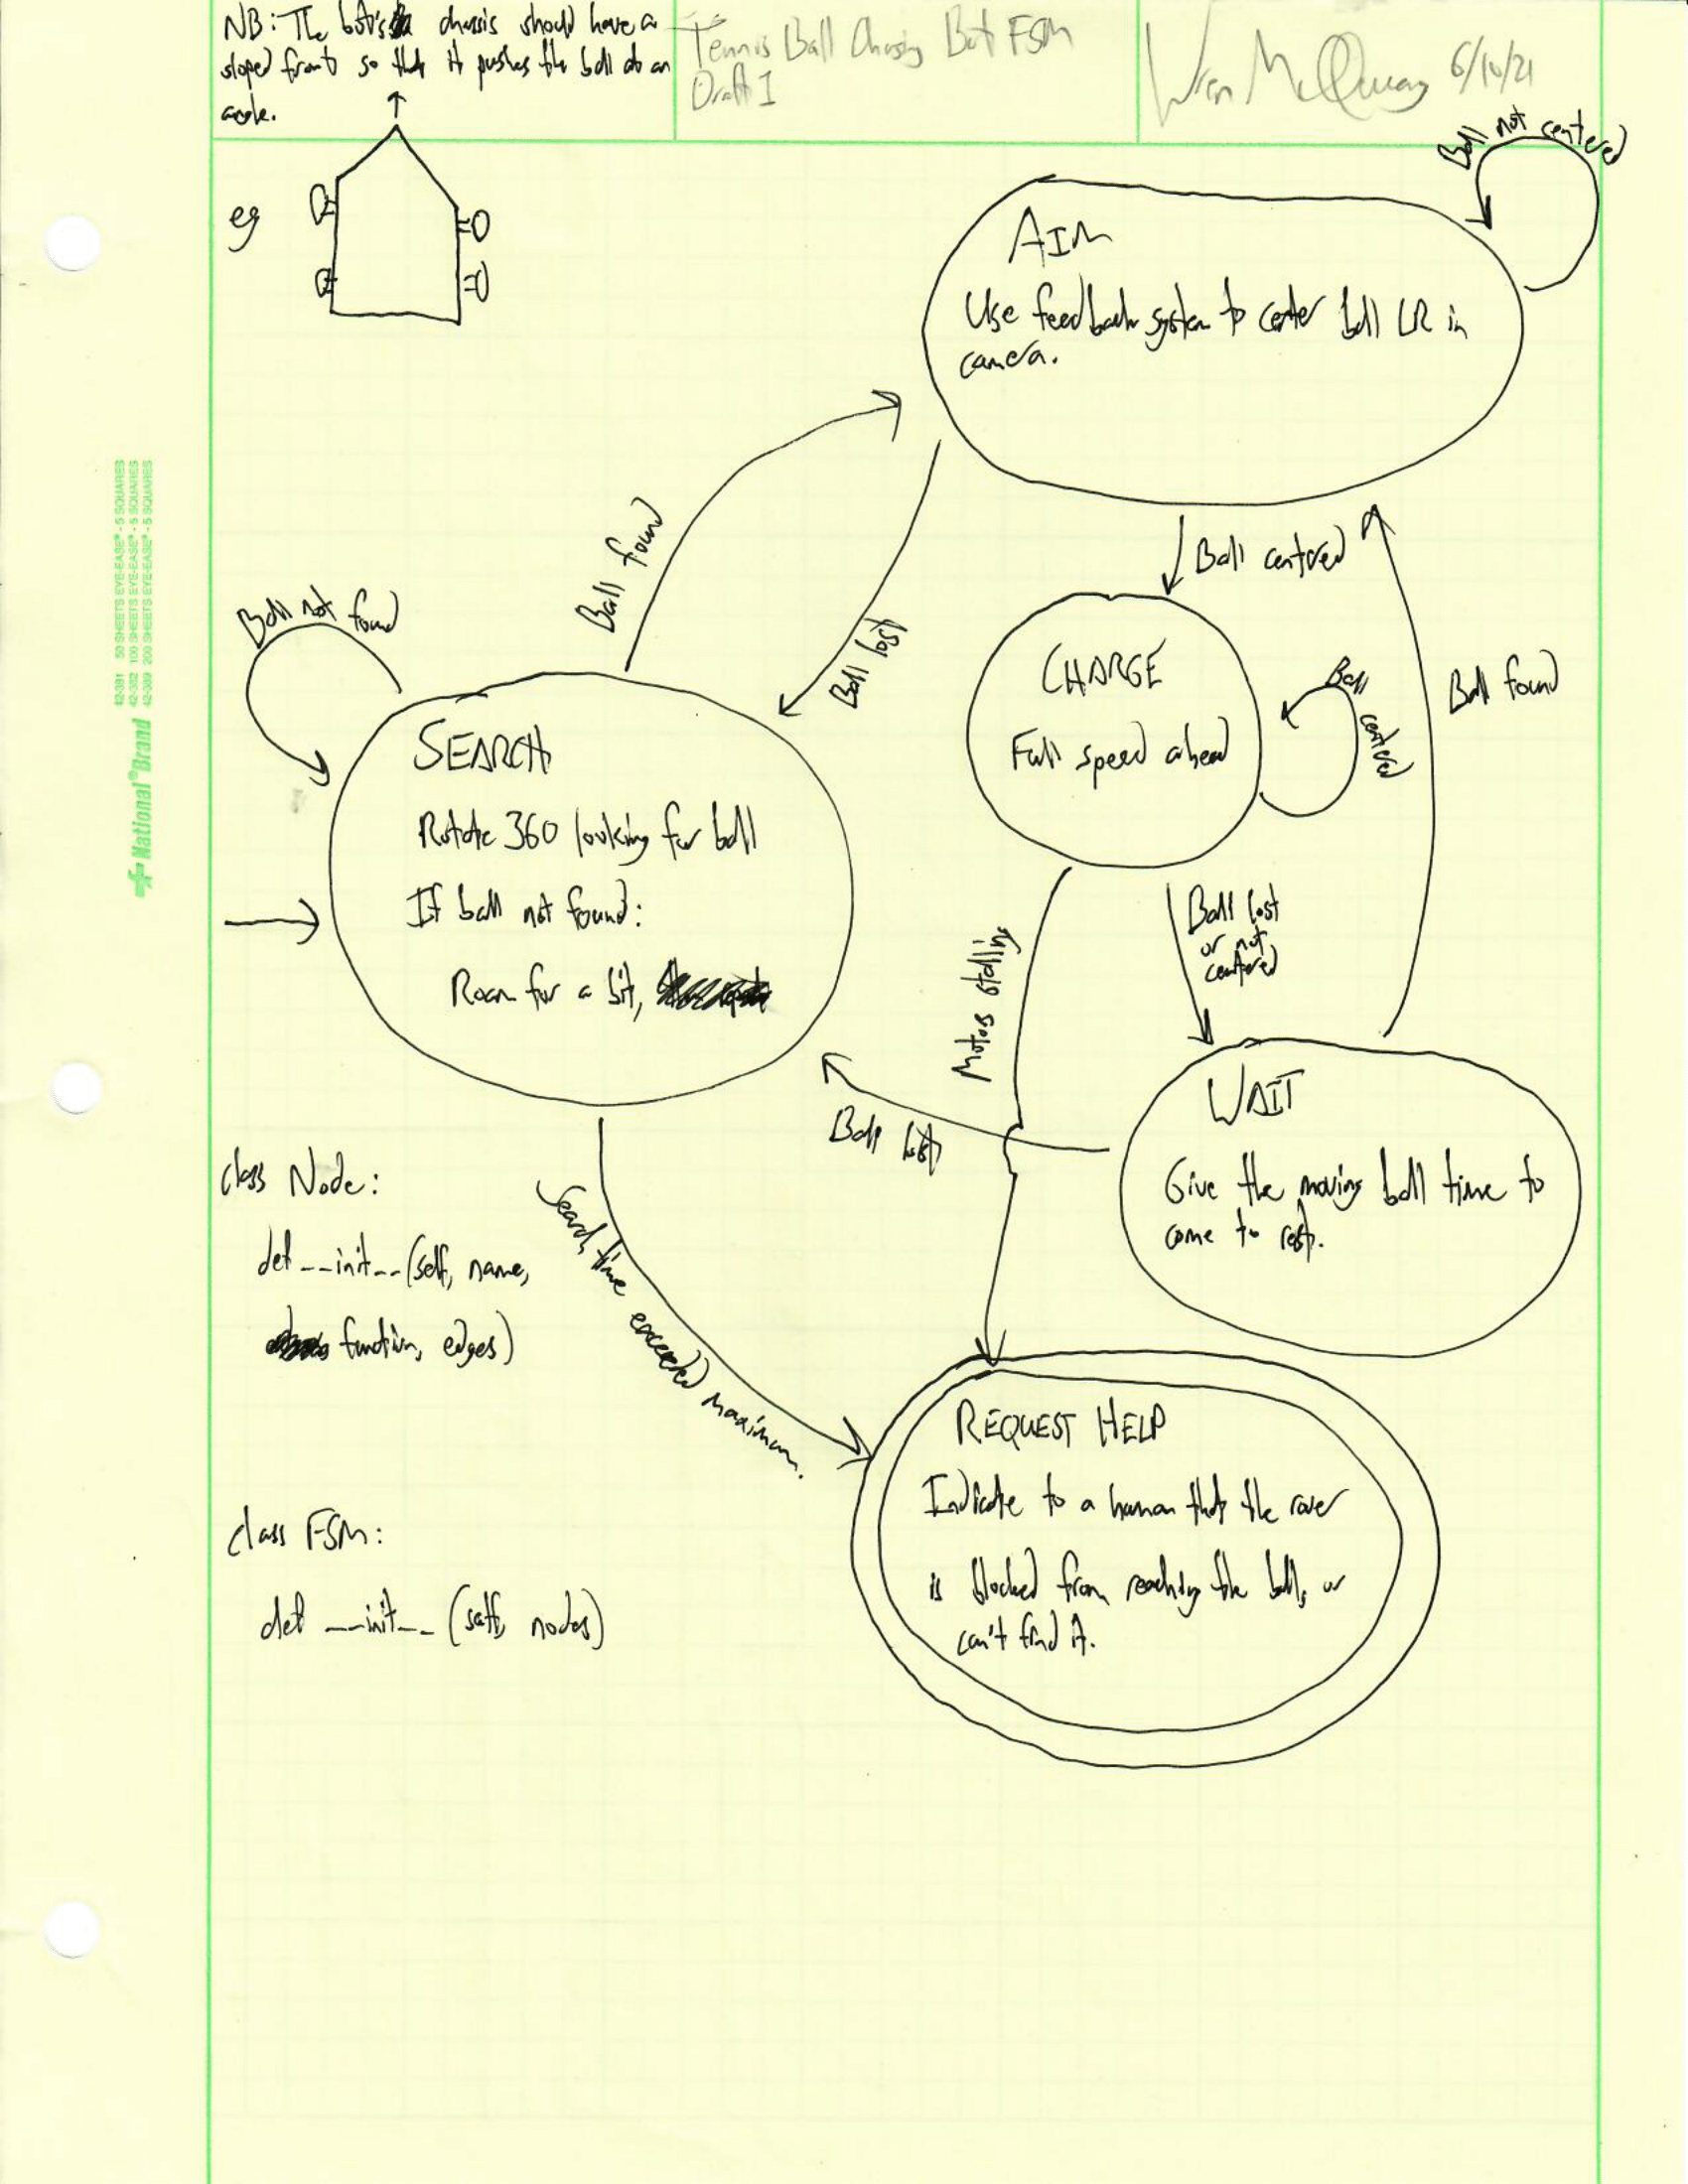 NB: The bot's chassis should have a
sloped front so that it pushes the ball at an
angle.
Tennis Ball Chasing Bot FSM
Draft 1
Wren McQueary 6/10/21
eg
Ball not centered
AIM
Use feedback system to center ball LR in
camera.
Ball found
Ball lost
Ball centered
Ball found
Ball not found
SEARCH
Rotate 360 looking for ball
If ball not found:
Roam for a bit,
CHARGE
Full speed ahead
Ball
centered
Ball lost
or not
centered
Motors stalling
Ball lost
WAIT
Give the moving ball time to
come to rest.
class Node:
def __init__(self, name,
function, edges)
Search time exceeded maximum.
REQUEST HELP
Indicate to a human that the rover
is blocked from reaching the ball, or
can't find it.
class FSM:
def __init__ (self, nodes)
42-381 50 SHEETS EYE-EASE® - 5 SQUARES
42-382 100 SHEETS EYE-EASE® - 5 SQUARES
42-389 200 SHEETS EYE-EASE® - 5 SQUARES
National®Brand